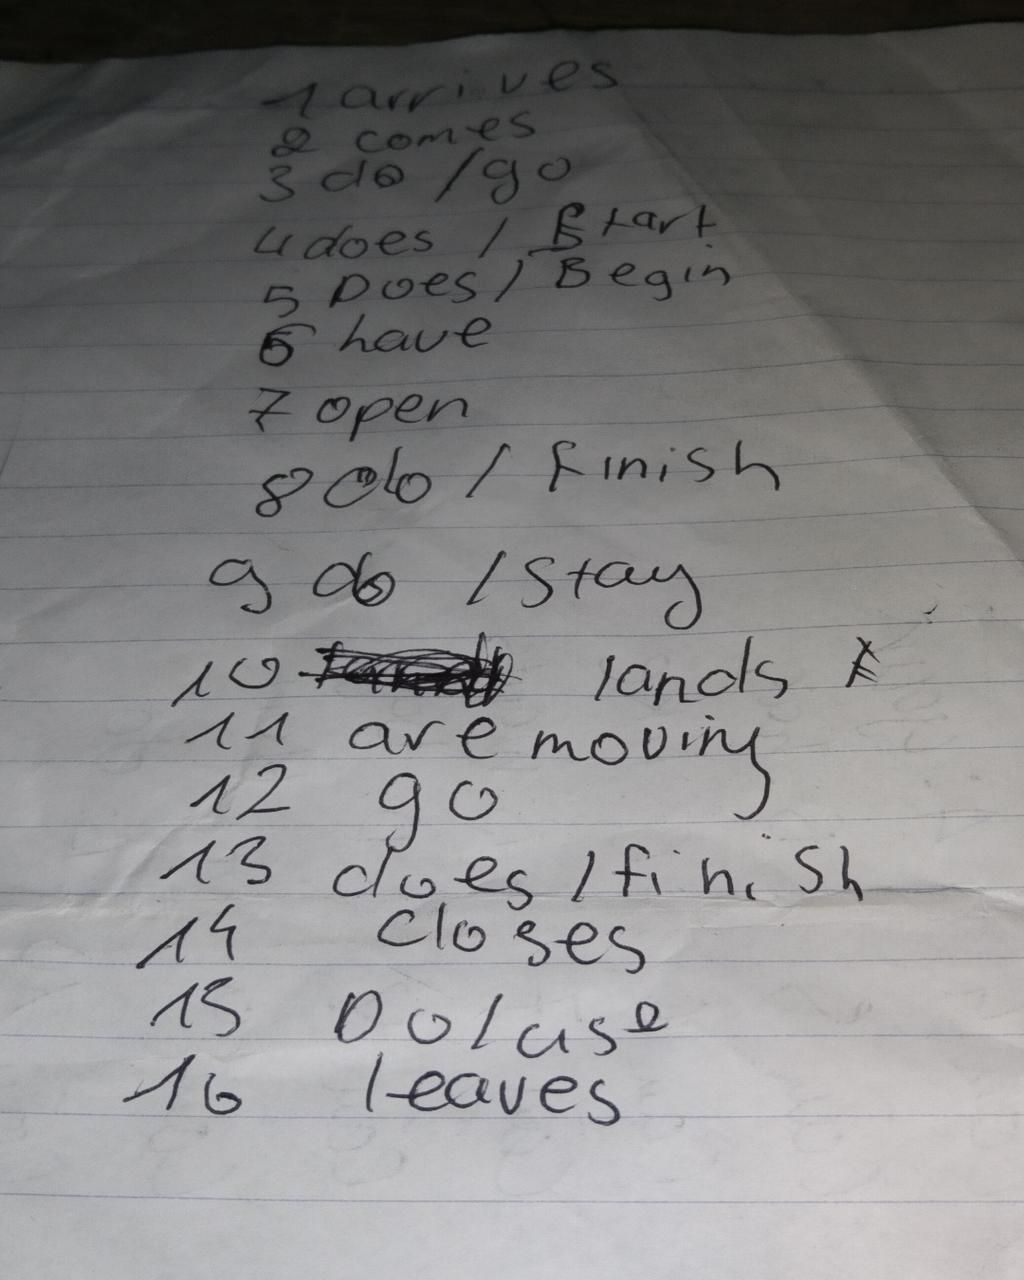 1 arrives
2 comes
3 do / go
4 does / Start
5 Does / Begin
6 have
7 open
8 do / Finish
9 do / Stay
10 lands
11 are moving
12 go
13 does / finish
14 closes
15 Do / use
16 leaves